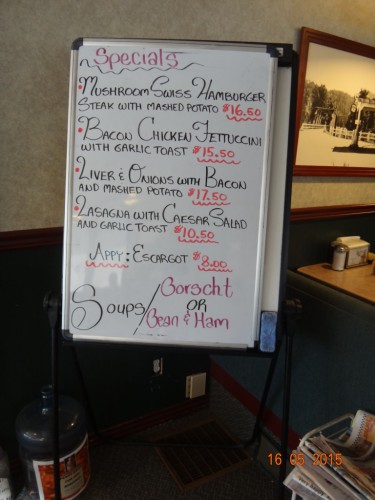 Specials
• Mushroom Swiss Hamburger
Steak with mashed potato $16.50
• Bacon Chicken Fettuccini
with garlic toast $15.50
• Liver & Onions with Bacon
and mashed potato $17.50
• Lasagna with Caesar Salad
and garlic toast $10.50
Appy: Escargot $8.00
Soups/ Borscht
or
Bean & Ham
16 05 2015